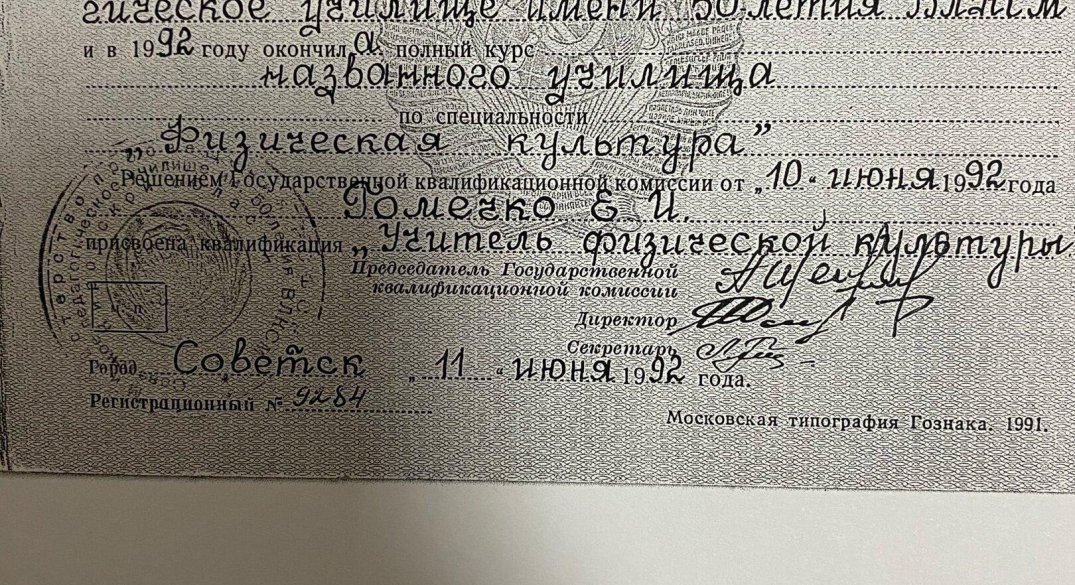 гическое училище имени 50-летия ВЛКСМ
и в 1992 году окончила полный курс
названного училища
по специальности
„Физическая культура”
Решением Государственной квалификационной комиссии от „10“ июня 1992 года
Гомечко Е И.
присвоена квалификация „Учитель физической культуры
Председатель Государственной
квалификационной комиссии
Директор
Секретарь
Город Советск „11“ июня 1992 года.
Регистрационный № 9284
Московская типография Гознака. 1991.